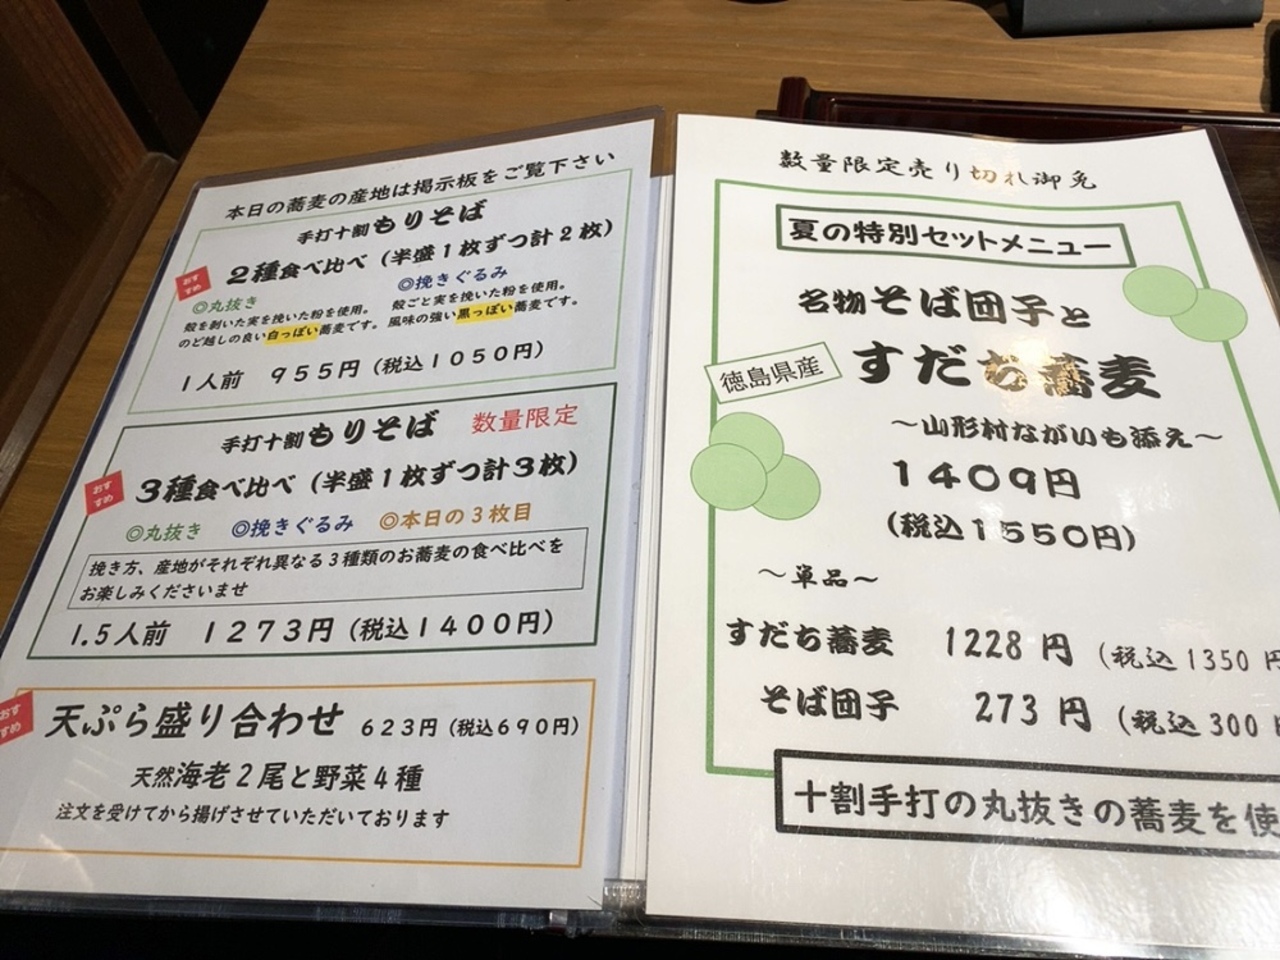 本日の蕎麦の産地は掲示板をご覧下さい
手打十割もりそば
おすすめ
2種食べ比べ（半盛1枚ずつ計2枚）
◎丸抜き
殻を剥いた実を挽いた粉を使用。
のど越しの良い白っぽい蕎麦です。
◎挽きぐるみ
殻ごと実を挽いた粉を使用。
風味の強い黒っぽい蕎麦です。
1人前 955円（税込1050円）
手打十割もりそば 数量限定
おすすめ
3種食べ比べ（半盛1枚ずつ計3枚）
◎丸抜き ◎挽きぐるみ ◎本日の3枚目
挽き方、産地がそれぞれ異なる3種類のお蕎麦の食べ比べを
お楽しみくださいませ
1.5人前 1273円（税込1400円）
おすすめ
天ぷら盛り合わせ 623円（税込690円）
天然海老2尾と野菜4種
注文を受けてから揚げさせていただいております
数量限定売り切れ御免
夏の特別セットメニュー
名物そば団子と
徳島県産
すだち蕎麦
～山形村ながいも添え～
1409円
（税込1550円）
～単品～
すだち蕎麦 1228円（税込1350円
そば団子 273円（税込300
十割手打の丸抜きの蕎麦を使